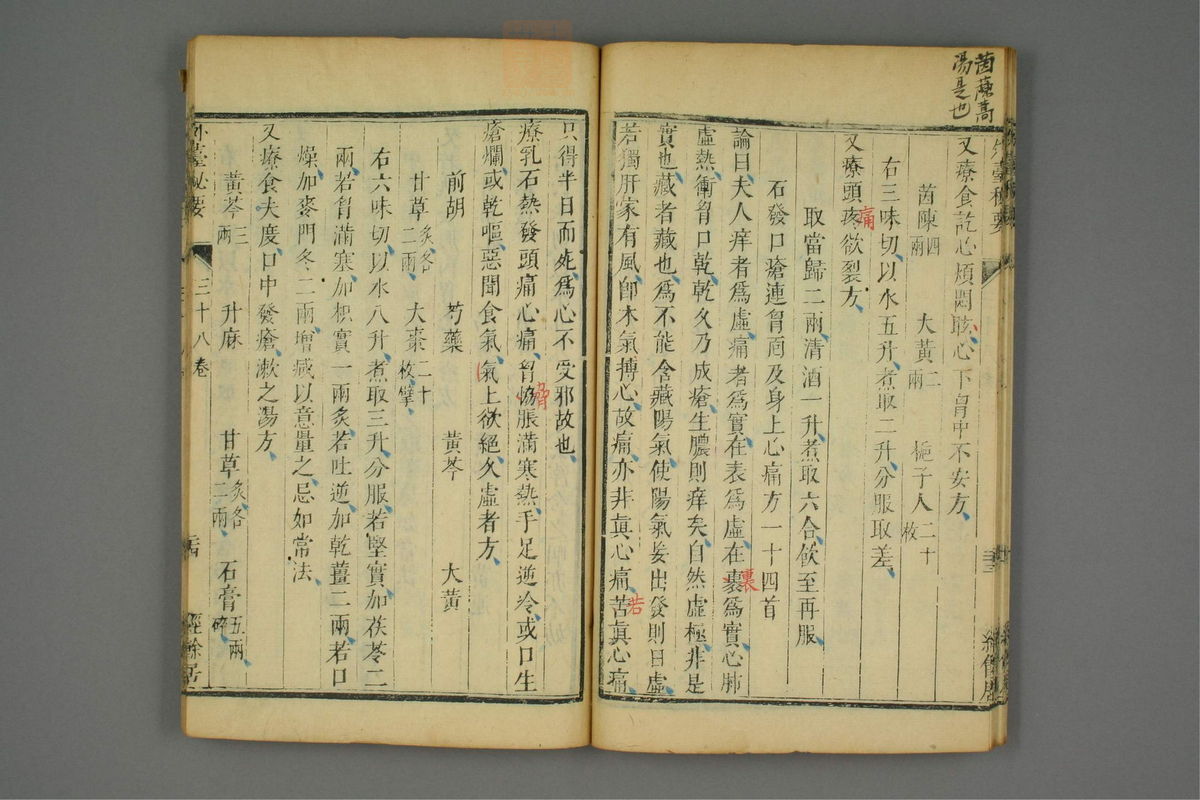 茵蔯蒿
湯是也
又療食訖心煩悶眩心下胷中不安方
茵陳四兩　大黃二兩　梔子人二十枚
右三味切以水五升煮取二升分服取差
又療頭疼欲裂方
痛
取當歸二兩清酒一升煮取六合飲至再服
石發口瘡連胷面及身上心痛方一十四首
論曰夫人痒者爲虛痛者爲實在表爲虛在裹爲實心肺
裏
虛熱衝胷口乾乾久乃成瘡生膿則痒矣自然虛極非是
實也藏者藏也爲不能含藏陽氣使陽氣妄出發則日虛
若獨肝家有風卽木氣搏心故痛亦非眞心痛苦眞心痛
若
只得半日而死爲心不受邪故也
療乳石熱發頭痛心痛胷恊脹滿寒熱手足逆冷或口生
脅
瘡爛或乾嘔惡聞食氣氣上欲絕久虛者方
前胡　芍藥　黃芩　大黃
甘草炙各二兩　大棗二十枚擘
右六味切以水八升煮取三升分服若堅實加茯苓二
兩若胷滿塞加枳實一兩炙若吐逆加乾薑二兩若口
燥加麥門冬二兩增減以意量之忌如常法
又療食夫度口中發瘡漱之湯方
黃芩三兩　升麻　甘草炙各二兩　石膏五兩碎
外臺祕要　三十八卷　經餘居